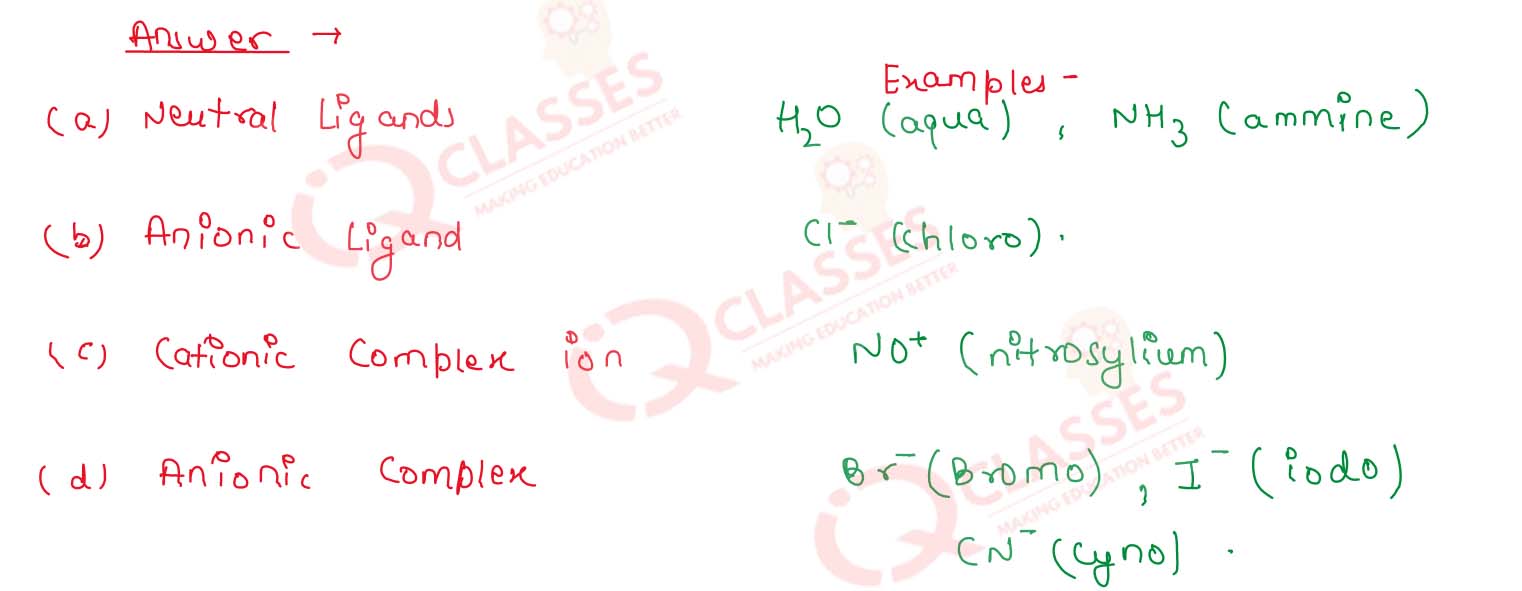 Answer →
Examples -
(a) Neutral Ligands H₂O (aqua) , NH₃ (ammine)
(b) Anionic Ligand Cl⁻ (chloro) .
(c) Cationic Complex ion NO⁺ (nitrosylium)
(d) Anionic Complex Br⁻ (Bromo) , I⁻ (iodo)
CN⁻ (cyno) .
iQ CLASSES
MAKING EDUCATION BETTER
iQ CLASSES
MAKING EDUCATION BETTER
iQ CLASSES
MAKING EDUCATION BETTER